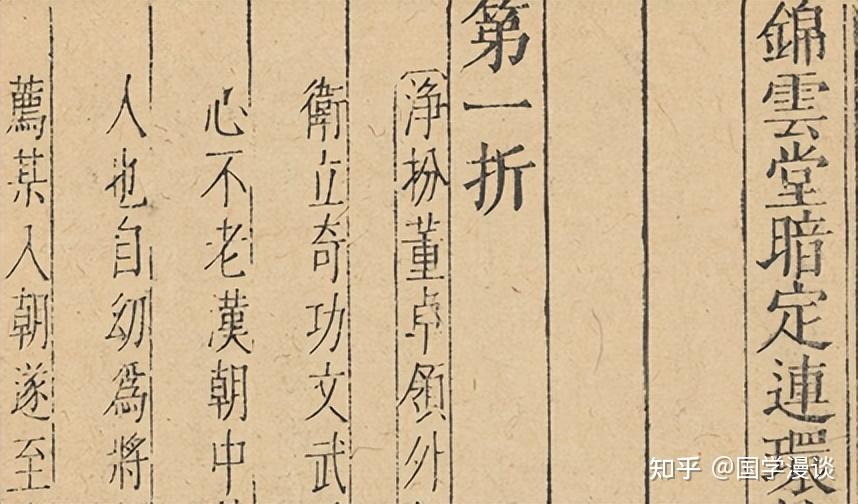 錦雲堂暗定連環
第一折
淨扮董卓領外
衛立奇功文武
心不老漢朝中
人也自㓜為將
薦某入朝遂至
知乎 @国学漫谈